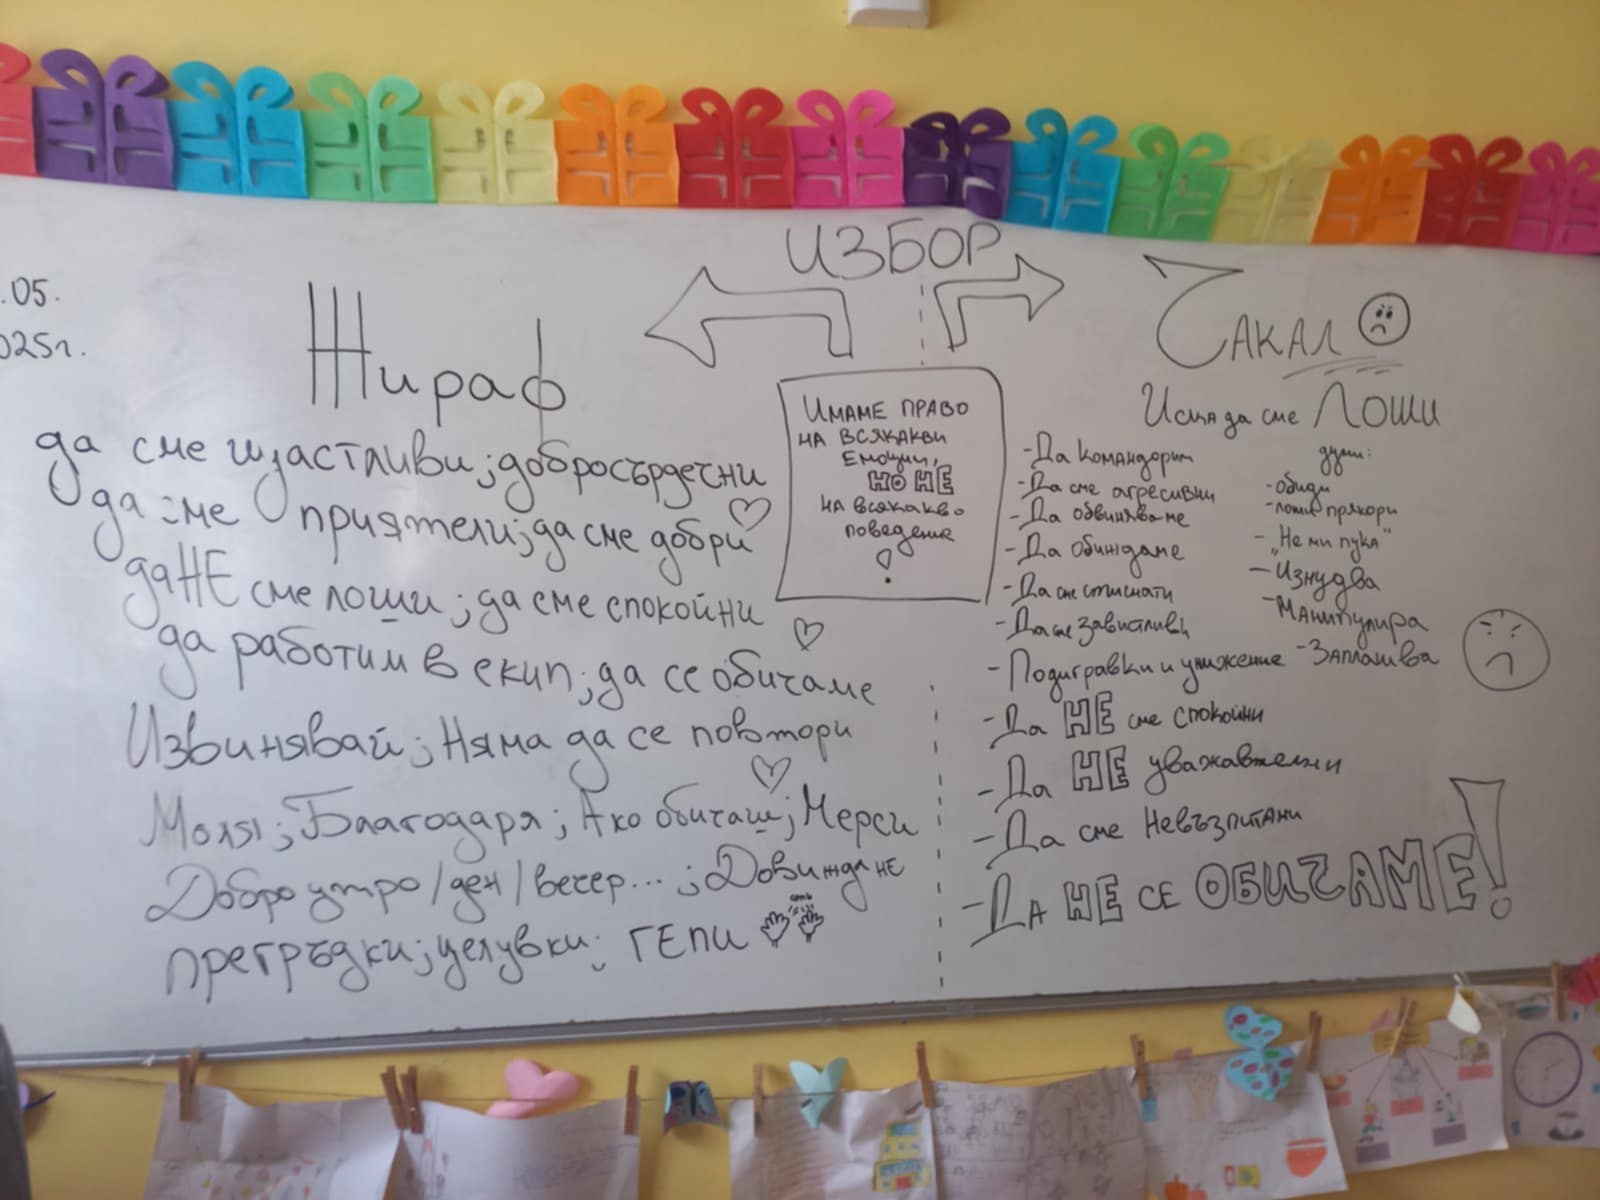 .05.
025г.
ИЗБОР
Жираф
да сме щастливи; добросърдечни
да сме приятели; да сме добри
да НЕ сме лоши; да сме спокойни
да работим в екип; да се обичаме
Извинявай; Няма да се повтори
Моля; Благодаря; Ако обичаш; Мерси
Добро утро/ден/вечер...; Довиждане
прегръдки; целувки; ГЕПИ
ИМАМЕ ПРАВО
НА ВСЯКАКВИ
ЕМОЦИИ,
НО НЕ
НА ВСЯКАКВО
ПОВЕДЕНИЕ
!
ЧАКАЛ
Иска да сме ЛОШИ
- Да командорим
- Да сме агресивни
- Да обвиняваме
- Да обиждаме
- Да сме стиснати
- Да сме завистливи
- Подигравки и унижение
- Да НЕ сме спокойни
- Да НЕ уважавтелни
- Да сме Невъзпитани
- Да НЕ СЕ ОБИЧАМЕ!
думи:
- обиди
- лоши прякори
- „Не ми пука“
- Изнудва
- Манипулира
- Заплашва